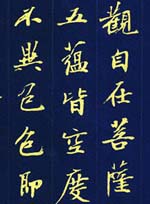 觀自在菩薩
五蘊皆空度
不異色色即